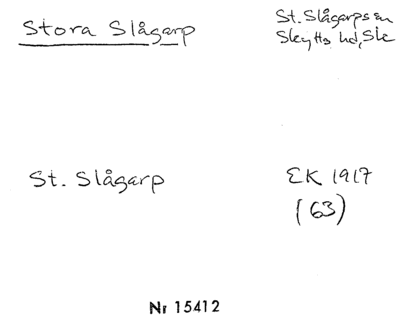 Stora Slågarp
St. Slågarps sn
Skytts hd, Sk
St. Slågarp
EK 1917
(63)
Nr 15412